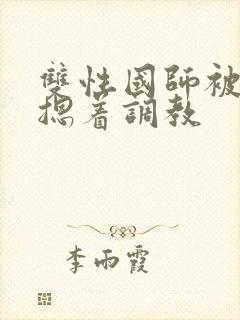 雙性國師被
摁著調教
李雨霞